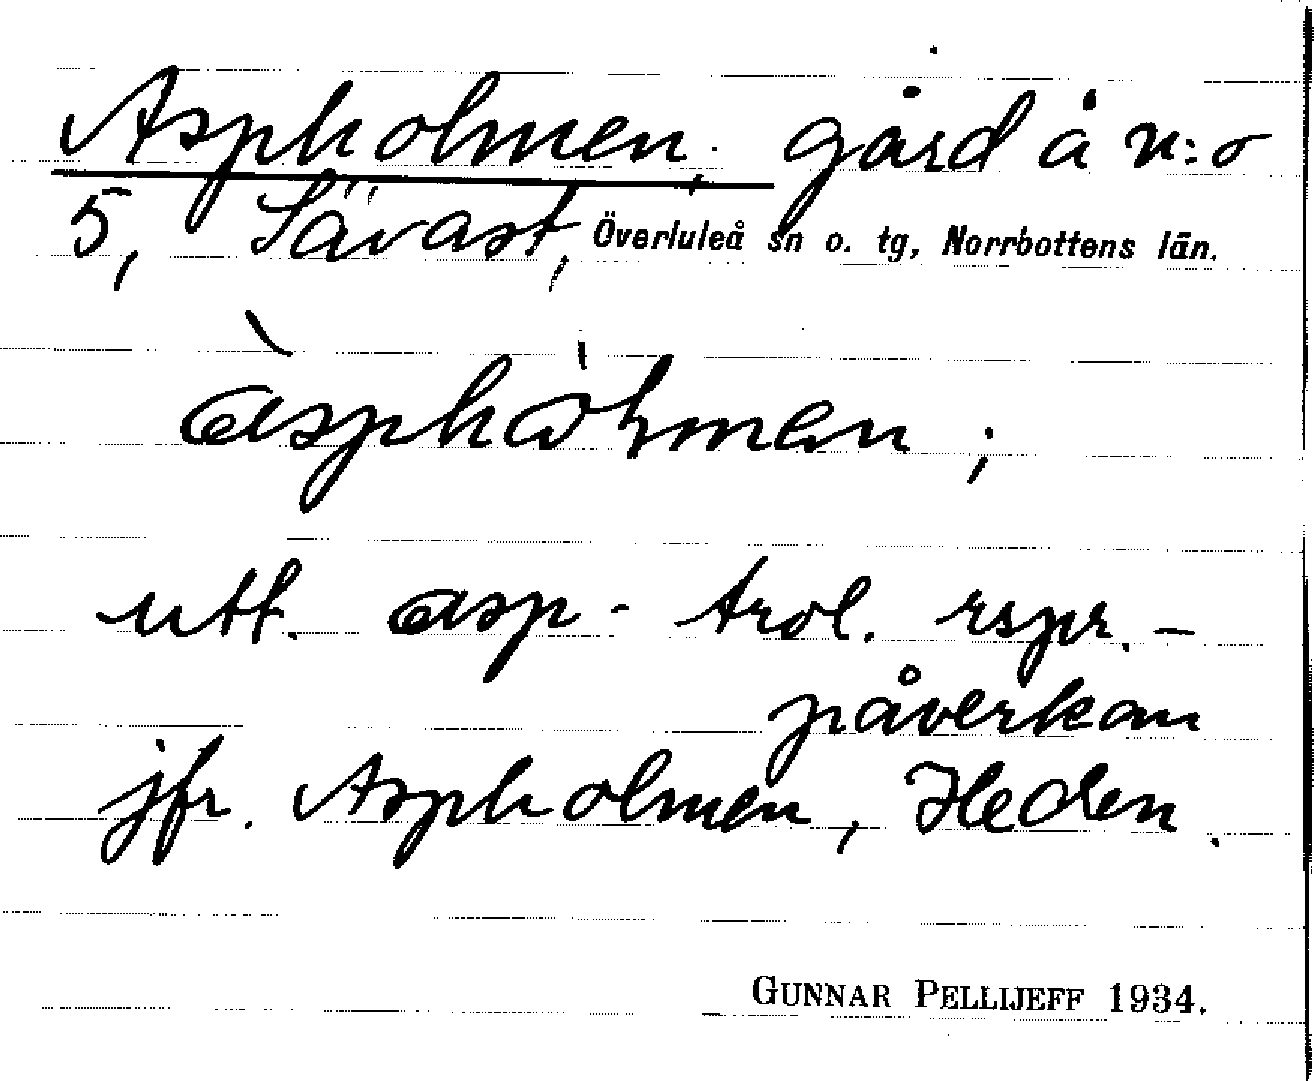 Aspholmen, gård å n:o
5, Sävast, Överluleå sn o. tg, Norrbottens län.
utt. asp- trol. rspr.-
påverkan
jfr. Aspholmen, Heden.
GUNNAR PELLIJEFF 1934.